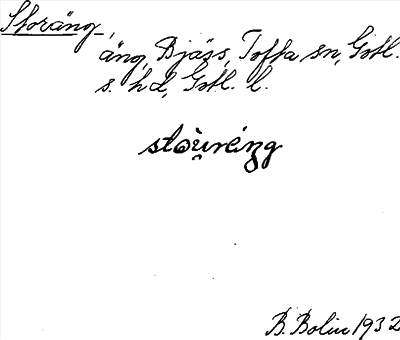 Storäng,
äng, Bjärs, Tofta sn, Gotl.
s. hd, Gotl. l.
stoùréng
B. Bolin 1932